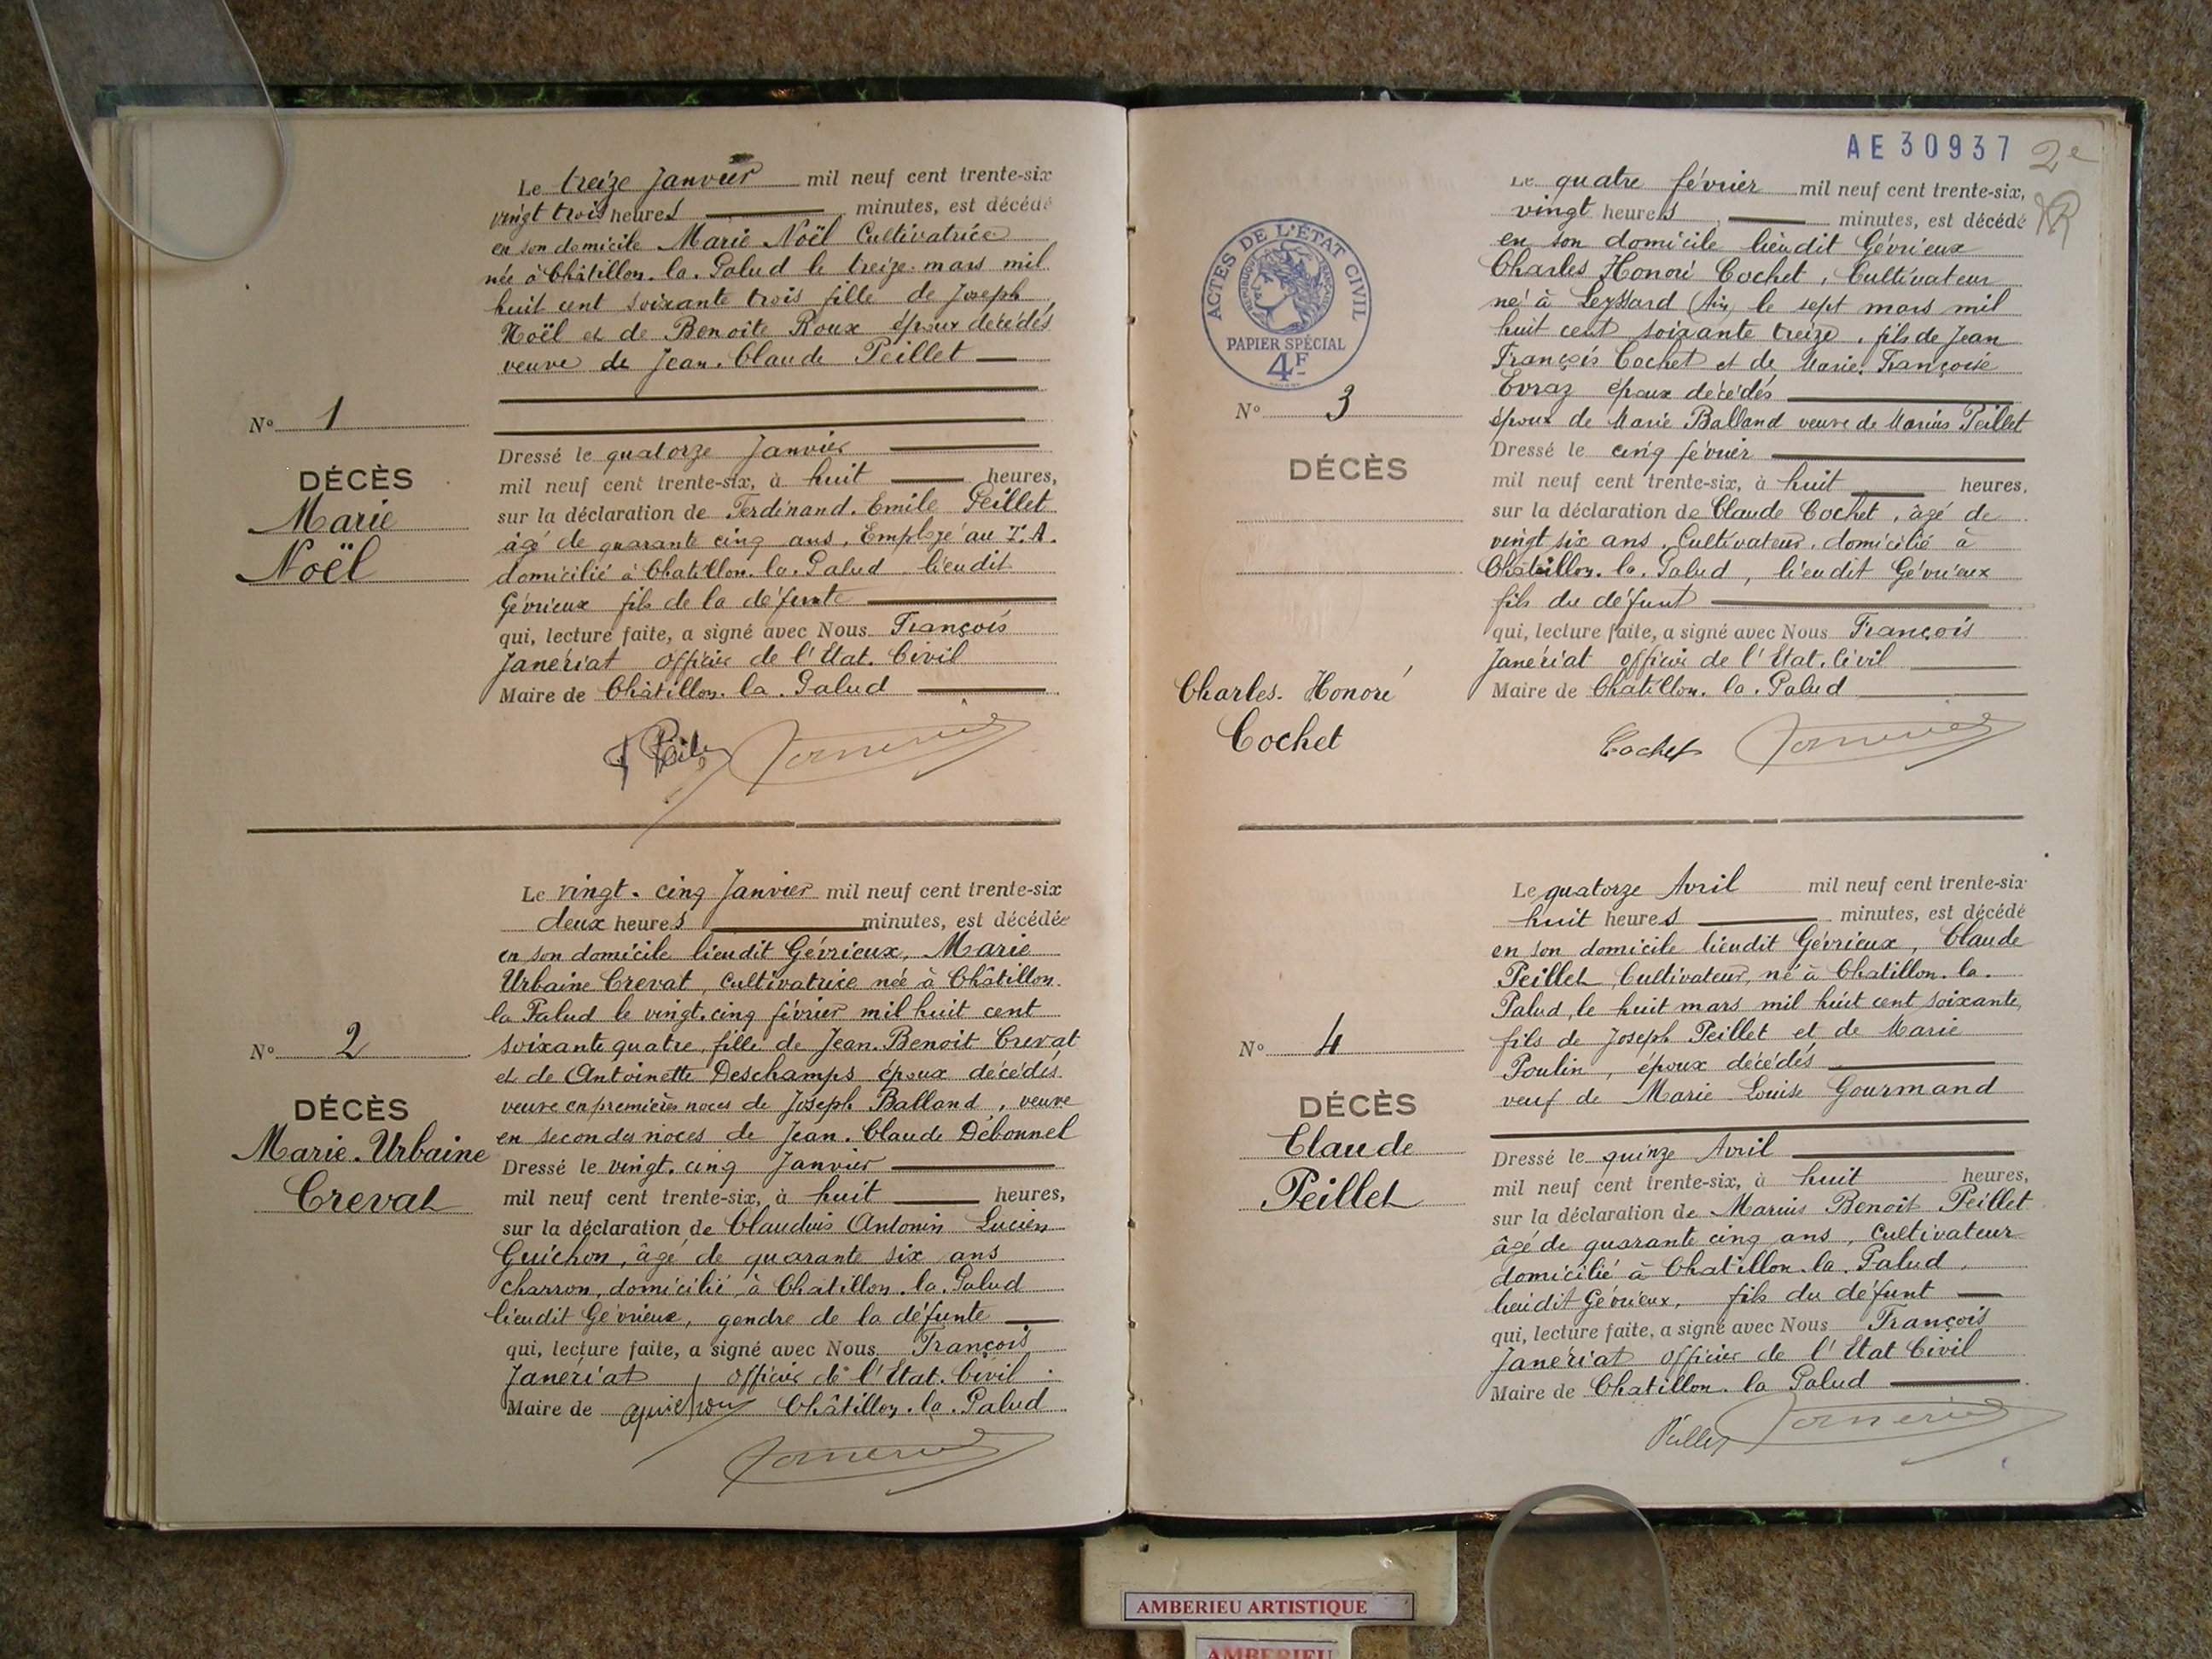 Le treize Janvier mil neuf cent trente-six
vingt trois heures minutes, est décédé
en son domicile Marie Noël Cultivatrice
née à Châtillon. la. Palud le treize mars mil
huit cent soixante trois fille de Joseph
Noël et de Benoite Roux époux décédés
veuve de Jean. Claude Peillet
No 1
DÉCÈS
Marie
Noël
Dressé le quatorze Janvier
mil neuf cent trente-six, à huit heures,
sur la déclaration de Ferdinand. Emile Peillet
âgé de quarante cinq ans, Employé au T.A.
domicilié à Chatillon. la. Palud lieudit
Gévrieux fils de la défunte
qui, lecture faite, a signé avec Nous François
Janériat officier de l'Etat. Civil
Maire de Châtillon. la. Palud
Le vingt. cinq Janvier mil neuf cent trente-six
deux heures minutes, est décédée
en son domicile lieudit Gévrieux, Marie
Urbaine Crevat, cultivatrice née à Châtillon.
la Palud le vingt. cinq février mil huit cent
soixante quatre, fille de Jean. Benoit Crevat
et de Antoinette Deschamps époux décédés.
veuve en premières noces de Joseph Balland, veuve
en secondes noces de Jean. Claude Débonnel
No 2
DÉCÈS
Marie. Urbaine
Crevat
Dressé le vingt. cinq Janvier
mil neuf cent trente-six, à huit heures,
sur la déclaration de Claudius Antonin Lucien
Guichon, âgé de quarante six ans
charron, domicilié à Chatillon. la. Palud
lieudit Gévrieux, gendre de la défunte
qui, lecture faite, a signé avec Nous François
Janériat officier de l'Etat. Civil
Maire de Châtillon. la. Palud
AE 30937 2e
ACTES DE L'ÉTAT CIVIL
RÉPUBLIQUE FRANÇAISE
PAPIER SPÉCIAL
4F
Le quatre février mil neuf cent trente-six,
vingt heures minutes, est décédé
en son domicile lieudit Gévrieux
Charles Honoré Cochet, Cultivateur
né à Leyssard (Ain) le sept mars mil
huit cent soixante treize, fils de Jean
François Cochet et de Marie. Françoise
Evraz époux décédés
époux de Marie Balland veuve de Marius Peillet
No 3
DÉCÈS
Charles. Honoré
Cochet
Dressé le cinq février
mil neuf cent trente-six, à huit heures,
sur la déclaration de Claude Cochet, âgé de
vingt six ans, Cultivateur, domicilié à
Châtillon. la. Palud, lieudit Gévrieux
fils du défunt
qui, lecture faite, a signé avec Nous François
Janériat officier de l'Etat. Civil
Maire de Chatillon. la. Palud
Cochet
Le quatorze Avril mil neuf cent trente-six
huit heures minutes, est décédé
en son domicile lieudit Gévrieux, Claude
Peillet, Cultivateur, né à Chatillon. la.
Palud, le huit mars mil huit cent soixante,
fils de Joseph Peillet et de Marie
Poulin, époux décédés
veuf de Marie Louise Gourmand
No 4
DÉCÈS
Claude
Peillet
Dressé le quinze Avril
mil neuf cent trente-six, à huit heures,
sur la déclaration de Marius Benoit Peillet
âgé de quarante cinq ans, cultivateur
domicilié à Chatillon. la. Palud,
lieudit Gévrieux, fils du défunt
qui, lecture faite, a signé avec Nous François
Janériat officier de l'Etat Civil
Maire de Chatillon. la Palud
Peillet
AMBERIEU ARTISTIQUE
AMBERIEU